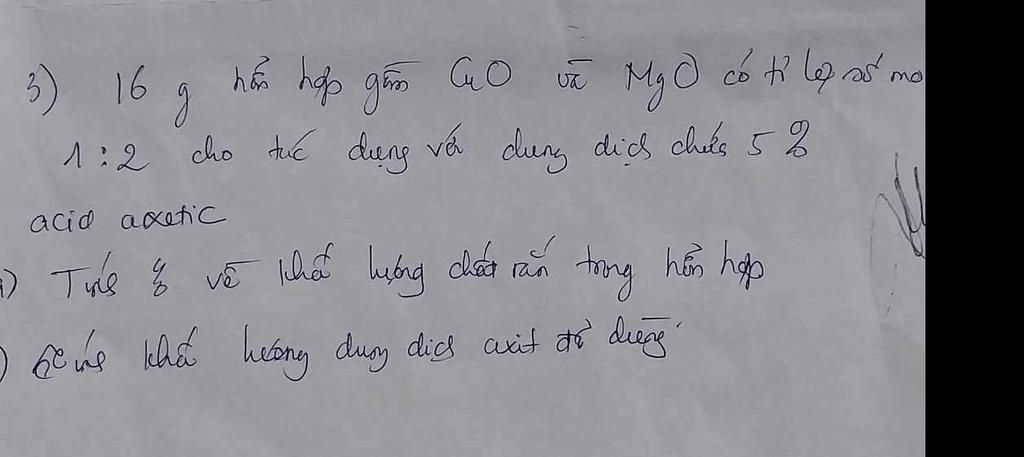 3) 16 g hỗn hợp gồm CuO và MgO có tỉ lệ số mo
1:2 cho tác dụng với dung dịch chứa 5 %
acid axetic
) Tính % về khối lượng chất rắn trong hỗn hợp
) Tính khối lượng dung dịch axit đã dùng